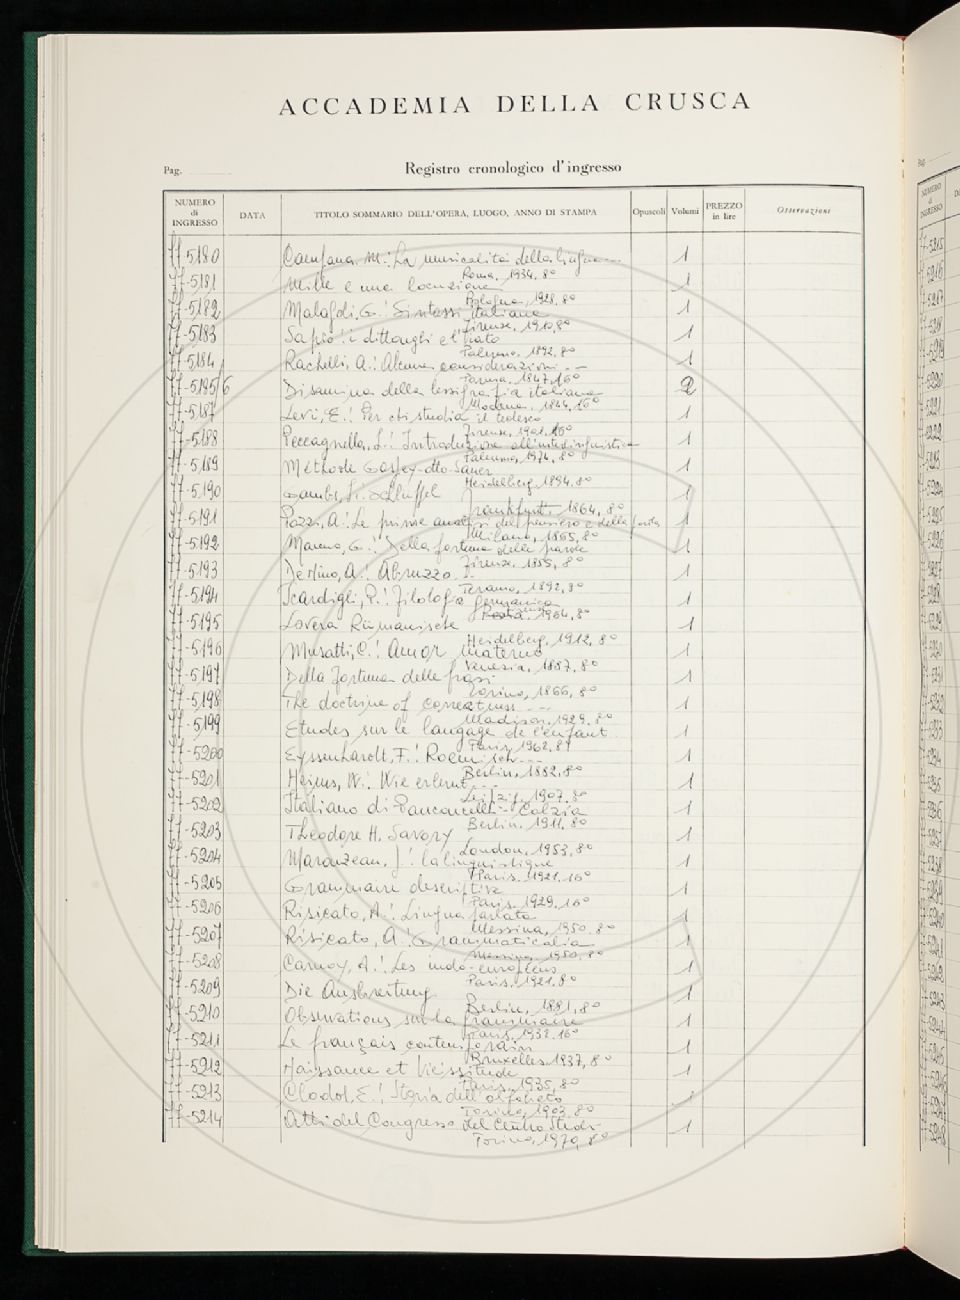 ACCADEMIA DELLA CRUSCA
Pag.
Registro cronologico d'ingresso
NUMERO di INGRESSO
DATA
TITOLO SOMMARIO DELL'OPERA, LUOGO, ANNO DI STAMPA
Opuscoli
Volumi
PREZZO in lire
Osservazioni
77-5180 Campana. M.: La musicalità della lingua 1
Roma, 1934, 8°
77-5181 Mille e una locuzione 1
Bologna, 1928, 8°
77-5182 Malagoli, G.: Sintassi italiana 1
Firenze, 1910, 8°
77-5183 Sapio: i dittonghi e l'iato 1
Palermo, 1892, 8°
77-5184 Rachelli, A.: Alcune considerazioni 1
Parma, 1847, 16°
77-5185/6 Disamina della lessigrafia italiana 2
Modena, 1844, 16°
77-5187 Levi, E.: Per chi studia il tedesco 1
Firenze, 1902, 16°
77-5188 Introduzione all'interlinguistica 1
Palermo, 1974, 8°
77-5189 Méthode Gaspey-Otto-Sauer 1
Heidelberg, 1894, 8°
77-5190 Schlüssel 1
Frankfurt, 1864, 8°
77-5191 Pozzi, A.: Le prime analisi del pensiero e della 1
Milano, 1865, 8°
77-5192 G.: Della fortuna delle parole 1
Firenze, 1855, 8°
77-5193 A.: Abruzzo 1
Teramo, 1892, 8°
77-5194 Scardigli, P.: Filologia germanica 1
1964, 8°
77-5195 Lovera Rumänische 1
Heidelberg, 1912, 8°
77-5196 Musatti, C.: Amor materno 1
Venezia, 1887, 8°
77-5197 Della fortuna delle frasi 1
Torino, 1866, 8°
77-5198 The doctrine of correctness 1
Madison, 1929, 8°
77-5199 Etudes sur le langage de l'enfant 1
Paris, 1962, 8°
77-5200 Eyssenhardt, F.: Roemisch 1
Berlin, 1882, 8°
77-5201 W.: Wie erlernt 1
Leipzig, 1907, 8°
77-5202 Italiano di Panconcelli-Calzia 1
Berlin, 1911, 8°
77-5203 Theodore H. Savory 1
London, 1953, 8°
77-5204 Marouzeau, J: La linguistique 1
Paris, 1921, 16°
77-5205 Grammaire descriptive 1
Paris, 1929, 16°
77-5206 Risicato, A.: Lingua parlata 1
Messina, 1950, 8°
77-5207 Risicato, A.: Grammaticalia 1
Messina, 1950, 8°
77-5208 Carnoy, A.: Les indo-européens 1
Paris, 1921, 8°
77-5209 Die Ausbreitung 1
Berlin, 1881, 8°
77-5210 Observations sur la grammaire 1
Paris, 1932, 16°
77-5211 Le français contemporain 1
Bruxelles, 1937, 8°
77-5212 Naissance et Vicissitude 1
Paris, 1935, 8°
77-5213 Clodd, E.: Storia dell'alfabeto 1
Torino, 1903, 8°
77-5214 Atti del Congresso del Centro Studi 1
Torino, 1970, 8°